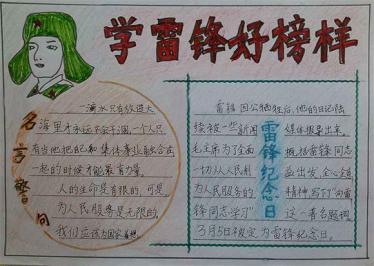 学雷锋好榜样
名言警句
一滴水只有放进大
海里才永远不会干涸,一个人只
有当他把自己和集体事业融合在
一起的时候才能最有力量。
人的生命是有限的,可是,
为人民服务是无限的,
我们应该为国家着想。
雷锋纪念日
雷锋因公牺牲后,他的日记陆
续被一些新闻媒体报导出来。
毛主席为了全面概括雷锋同志
一切从人民利益出发,全心全意
为人民服务的精神,写下"向雷
锋同志学习"这一著名题词,
3月5日被定为雷锋纪念日。